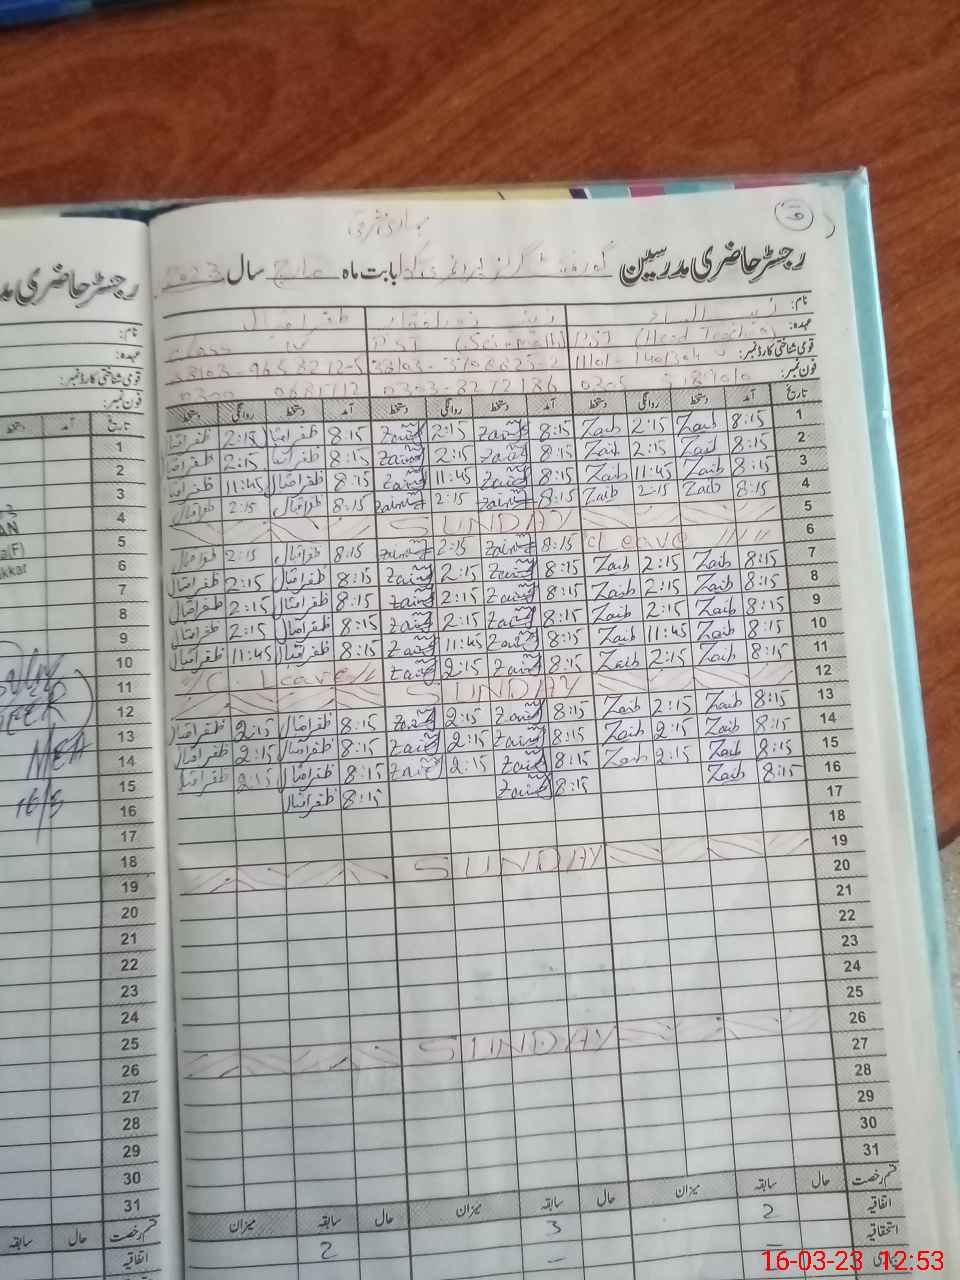 رجسٹر حاضری مدرسین گورنمنٹ گرلز پرائمری بابت ماہ مارچ سال 2023
نام: ظفر اقبال
عہدہ: PST (Head Teacher) PST (Science Math) Class IV
قومی شناختی کارڈ نمبر:
فون نمبر: 0305
تاریخ آمد دستخط روانگی دستخط آمد دستخط روانگی دستخط آمد دستخط روانگی دستخط
1 8:15 Zaib 2:15 Zaib 8:15 Zainab 2:15 Zainab 8:15 ظفر اقبال 2:15 ظفر اقبال
2 8:15 Zaib 2:15 Zaib 8:15 Zainab 2:15 Zainab 8:15 ظفر اقبال 2:15 ظفر اقبال
3 8:15 Zaib 11:45 Zaib 8:15 Zainab 11:45 Zainab 8:15 ظفر اقبال 11:45 ظفر اقبال
4 8:15 Zaib 2:15 Zaib 8:15 Zainab 2:15 Zainab 8:15 ظفر اقبال 2:15 ظفر اقبال
5 SUNDAY
6 leave 8:15 Zainab 2:15 Zainab 8:15 ظفر اقبال 2:15 ظفر اقبال
7 8:15 Zaib 2:15 Zaib 8:15 Zainab 2:15 Zainab 8:15 ظفر اقبال 2:15 ظفر اقبال
8 8:15 Zaib 2:15 Zaib 8:15 Zainab 2:15 Zainab 8:15 ظفر اقبال 2:15 ظفر اقبال
9 8:15 Zaib 2:15 Zaib 8:15 Zainab 2:15 Zainab 8:15 ظفر اقبال 2:15 ظفر اقبال
10 8:15 Zaib 11:45 Zaib 8:15 Zainab 11:45 Zainab 8:15 ظفر اقبال 11:45 ظفر اقبال
11 8:15 Zaib 2:15 Zaib 8:15 Zainab 2:15 Zainab Leave
12 SUNDAY
13 8:15 Zaib 2:15 Zaib 8:15 Zainab 2:15 Zainab 8:15 ظفر اقبال 2:15 ظفر اقبال
14 8:15 Zaib 2:15 Zaib 8:15 Zainab 2:15 Zainab 8:15 ظفر اقبال 2:15 ظفر اقبال
15 8:15 Zaib 2:15 Zaib 8:15 Zainab 2:15 Zainab 8:15 ظفر اقبال 2:15 ظفر اقبال
16 8:15 Zaib 8:15 Zainab 8:15 ظفر اقبال
17
18
19 SUNDAY
20
21
22
23
24
25
26 SUNDAY
27
28
29
30
31
قسم رخصت حال سابقہ میزان حال سابقہ میزان حال سابقہ میزان
اتفاقیہ 2 3 2
استحقاقیہ – –
رجسٹر حاضری مد
نام:
عہدہ:
قومی شناختی کارڈ نمبر:
فون نمبر:
تاریخ آمد دستخط
1
2
3
4
5
6
7
8
9
10
11
12
13
14
15
16
17
18
19
20
21
22
23
24
25
26
27
28
29
30
31
قسم رخصت حال سابقہ
اتفاقیہ
16/3
16-03-23 12:53